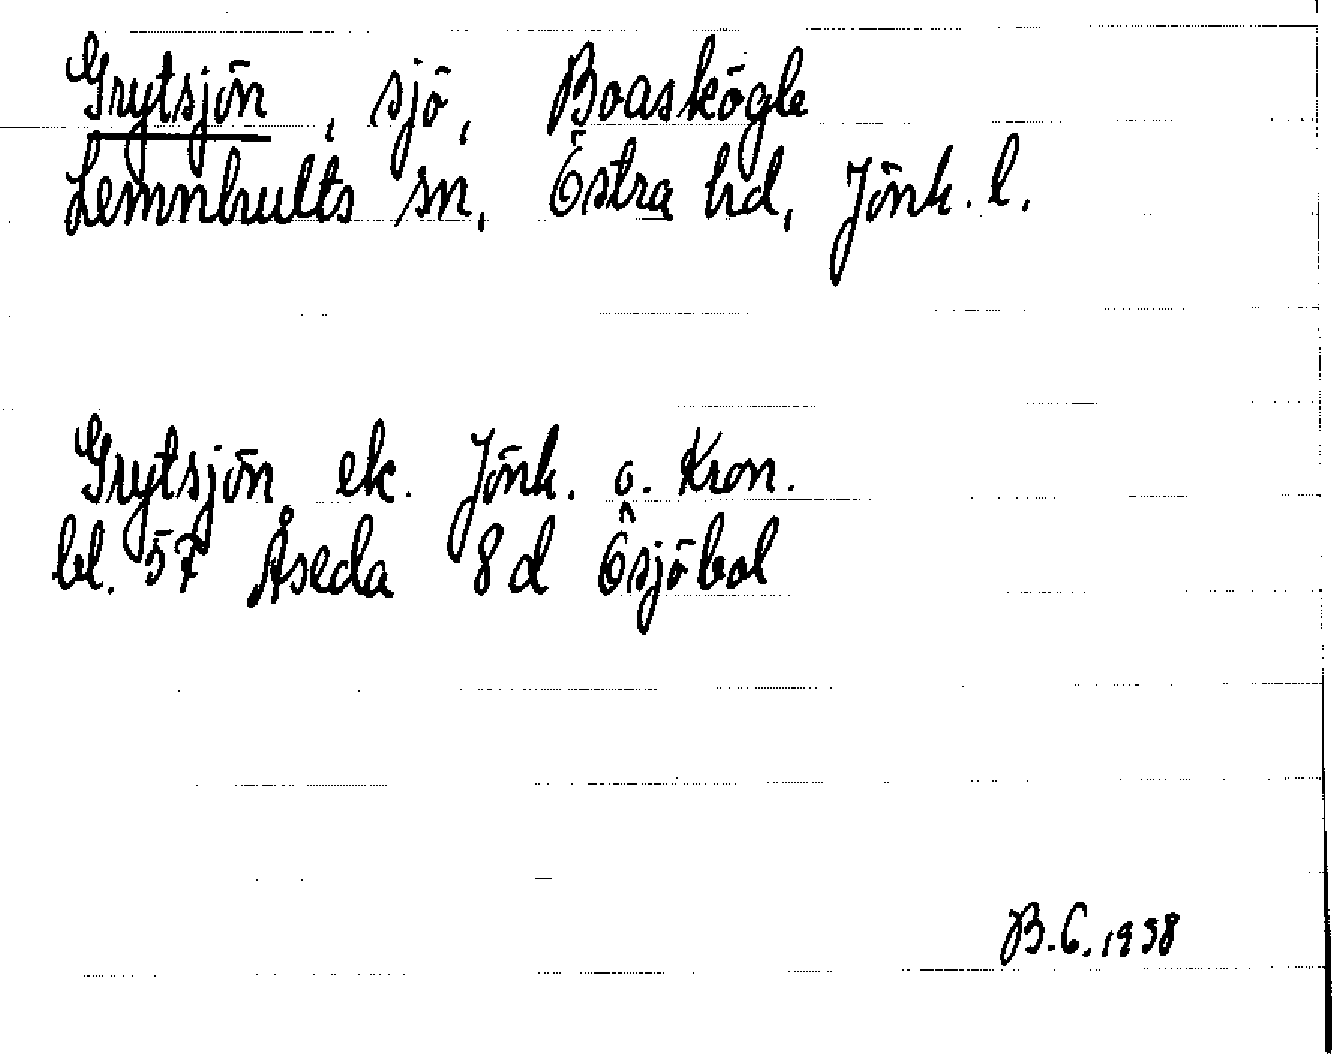 Grytsjön, sjö, Boaskögle
Lemnhults sn, Östra hd, Jönk. l.
Grytsjön ek. Jönk. o. Kron.
bl. 57 Åseda 8d Ösjöbol
B.C. 1938